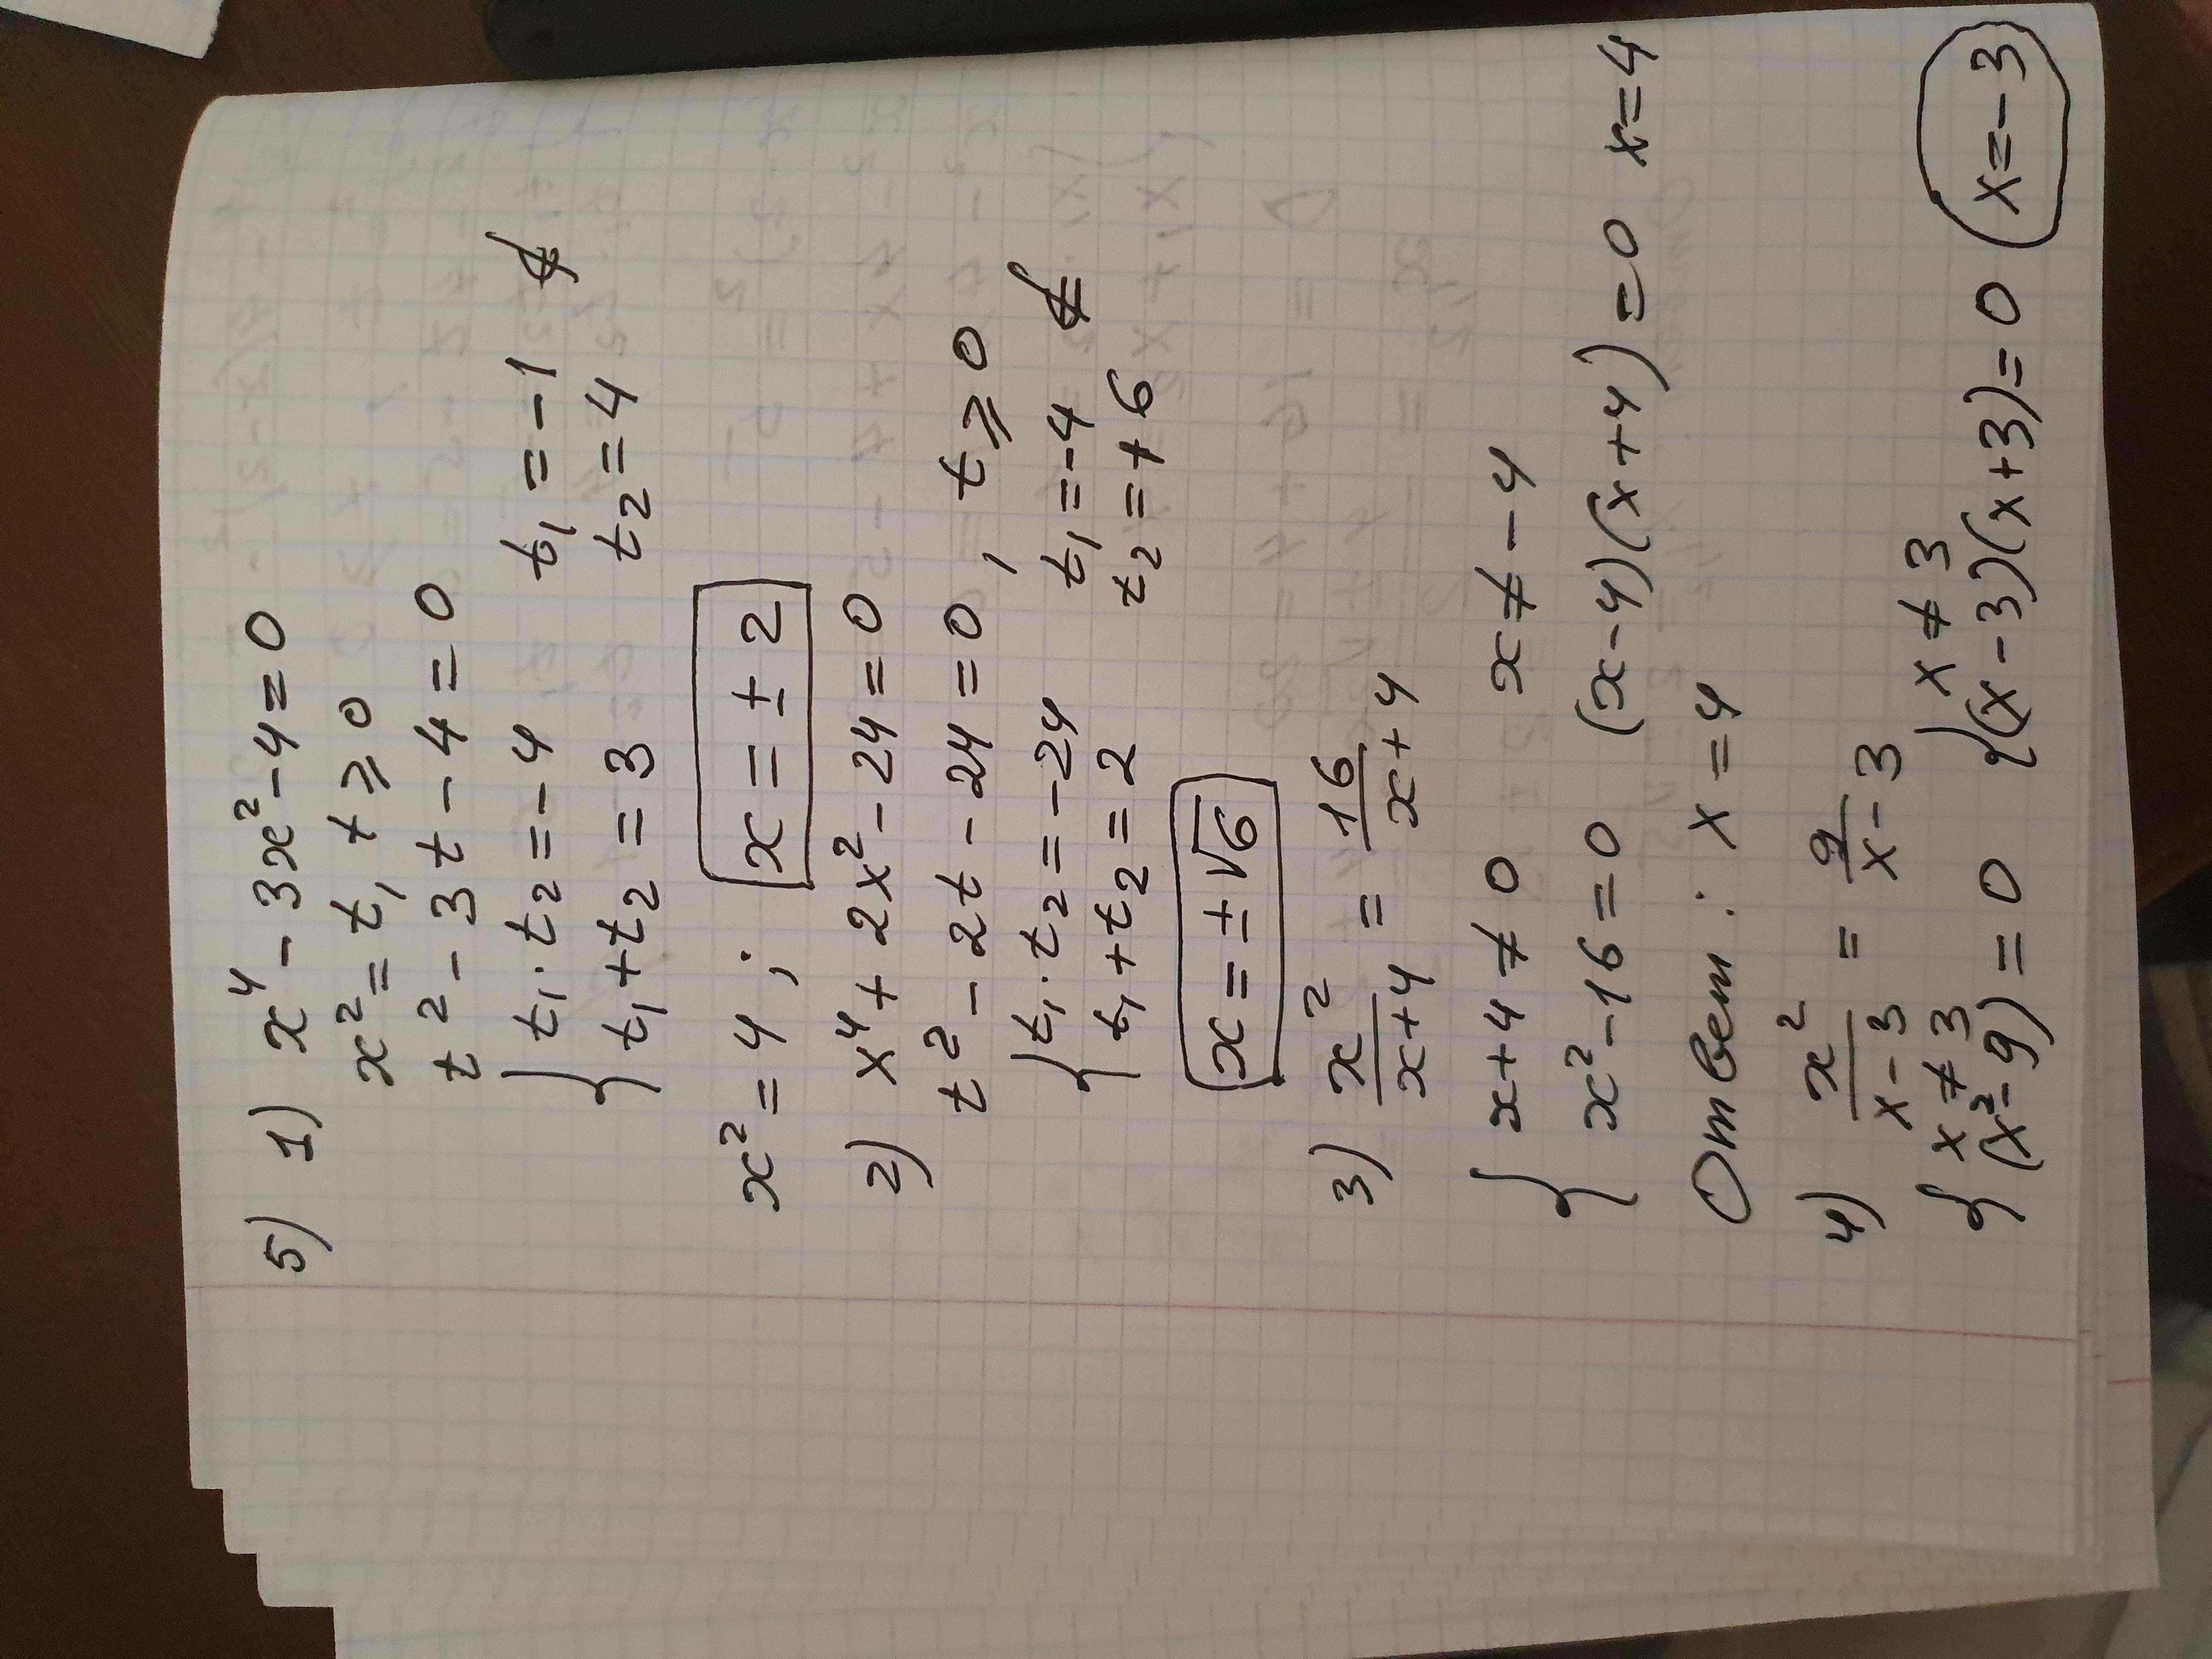 5) 1) x⁴ - 3x² - 4 = 0
x² = t, t ⩾ 0
t² - 3t - 4 = 0
{ t₁ · t₂ = -4 t₁ = -1 ∉
t₁ + t₂ = 3 t₂ = 4
x² = 4 ; x = ± 2
2) x⁴ + 2x² - 24 = 0
t² - 2t - 24 = 0 , t ⩾ 0
{ t₁ · t₂ = -24 t₁ = -4 ∉
t₁ + t₂ = 2 t₂ = +6
x = ± √6
3) x²/x+4 = 16/x+4
{ x + 4 ≠ 0 x ≠ -4
x² - 16 = 0 (x-4)(x+4) = 0 x = 4
Ответ : x = 4
4) x²/x-3 = 9/x-3
{ x ≠ 3 { x ≠ 3
(x² - 9) = 0 (x-3)(x+3) = 0 x = -3